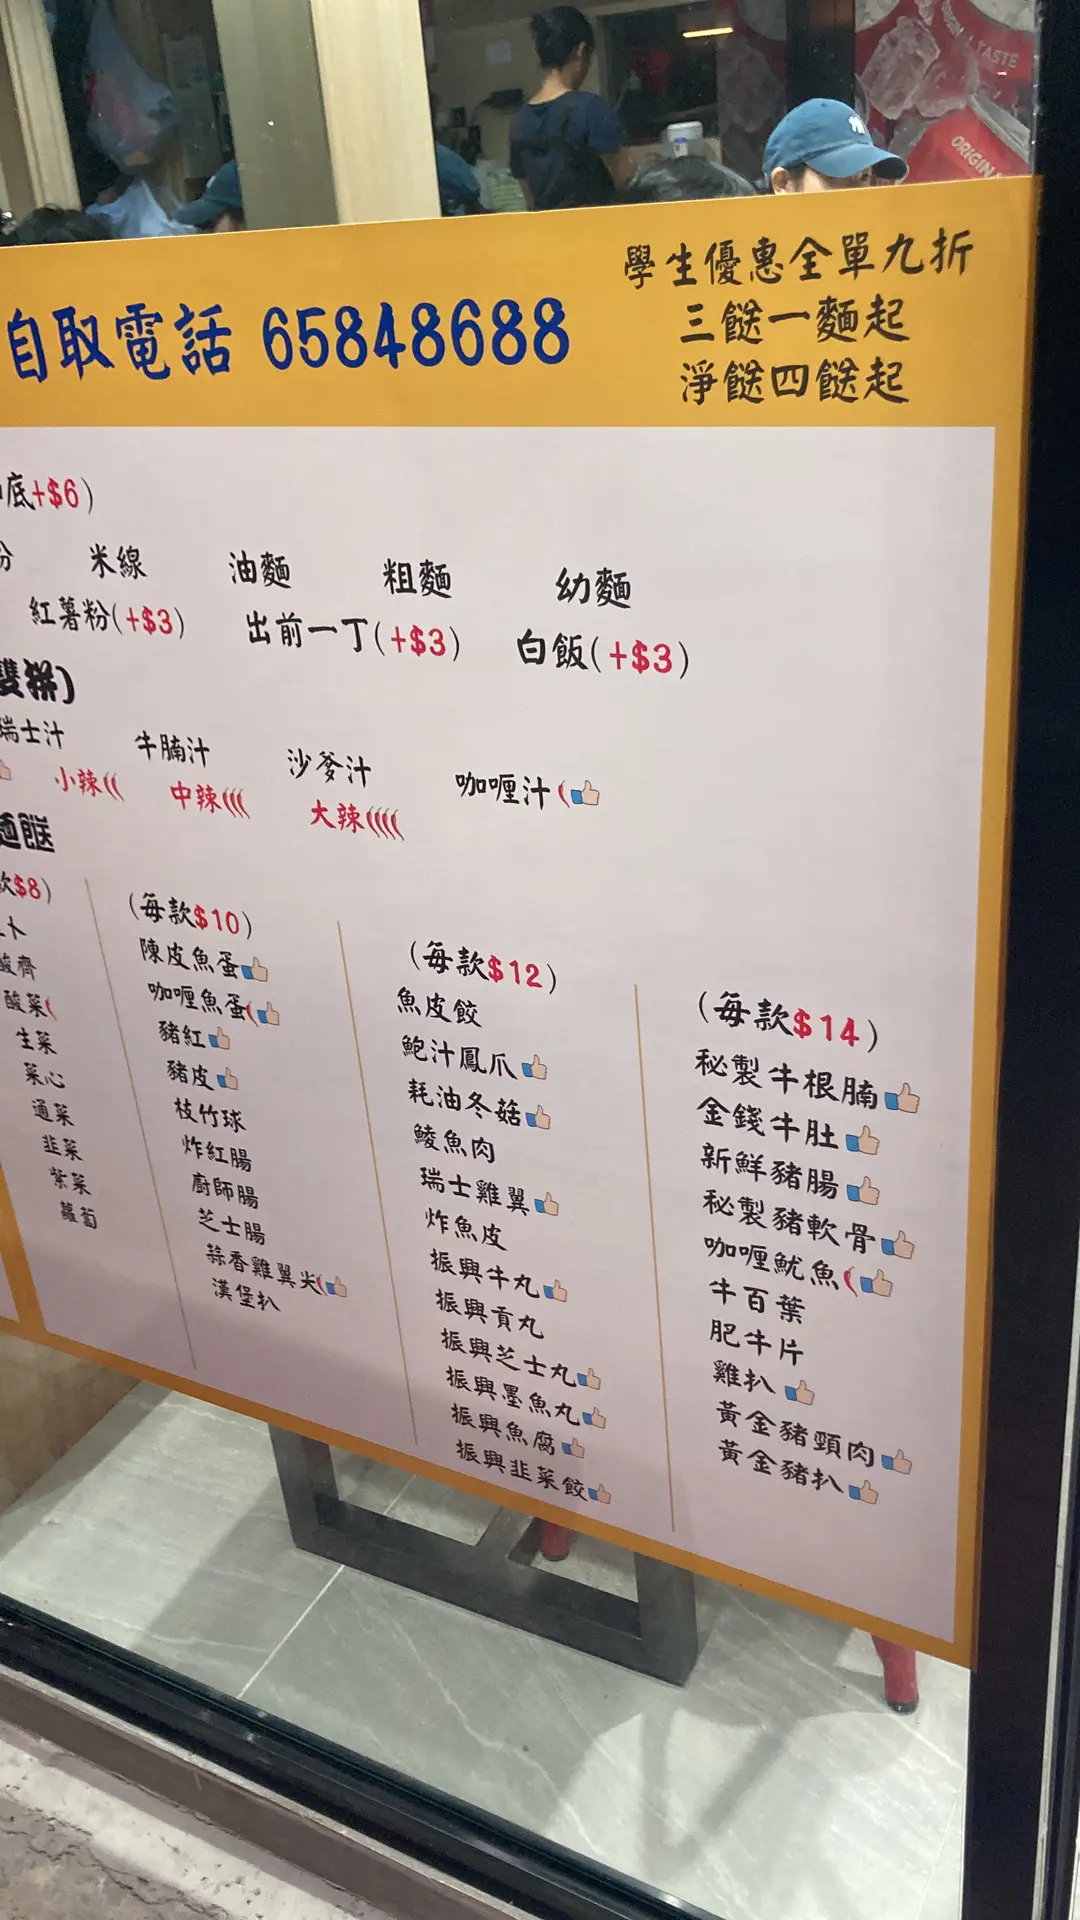 TASTE
ORIGINA
學生優惠全單九折
自取電話 65848688
三餸一麵起
淨餸四餸起
底+$6)
米線 油麵 粗麵 幼麵
紅薯粉(+$3) 出前一丁(+$3) 白飯(+$3)
雙拼)
瑞士汁 牛腩汁 沙爹汁 咖喱汁
小辣 中辣 大辣
麵餸
款$8)
酸齋
酸菜
生菜
菜心
通菜
韭菜
紫菜
蘿蔔
(每款$10)
陳皮魚蛋
咖喱魚蛋
豬紅
豬皮
枝竹球
炸紅腸
廚師腸
芝士腸
蒜香雞翼尖
漢堡扒
(每款$12)
魚皮餃
鮑汁鳳爪
耗油冬菇
鯪魚肉
瑞士雞翼
炸魚皮
振興牛丸
振興貢丸
振興芝士丸
振興墨魚丸
振興魚腐
振興韭菜餃
(每款$14)
秘製牛根腩
金錢牛肚
新鮮豬腸
秘製豬軟骨
咖喱魷魚
牛百葉
肥牛片
雞扒
黃金豬頸肉
黃金豬扒